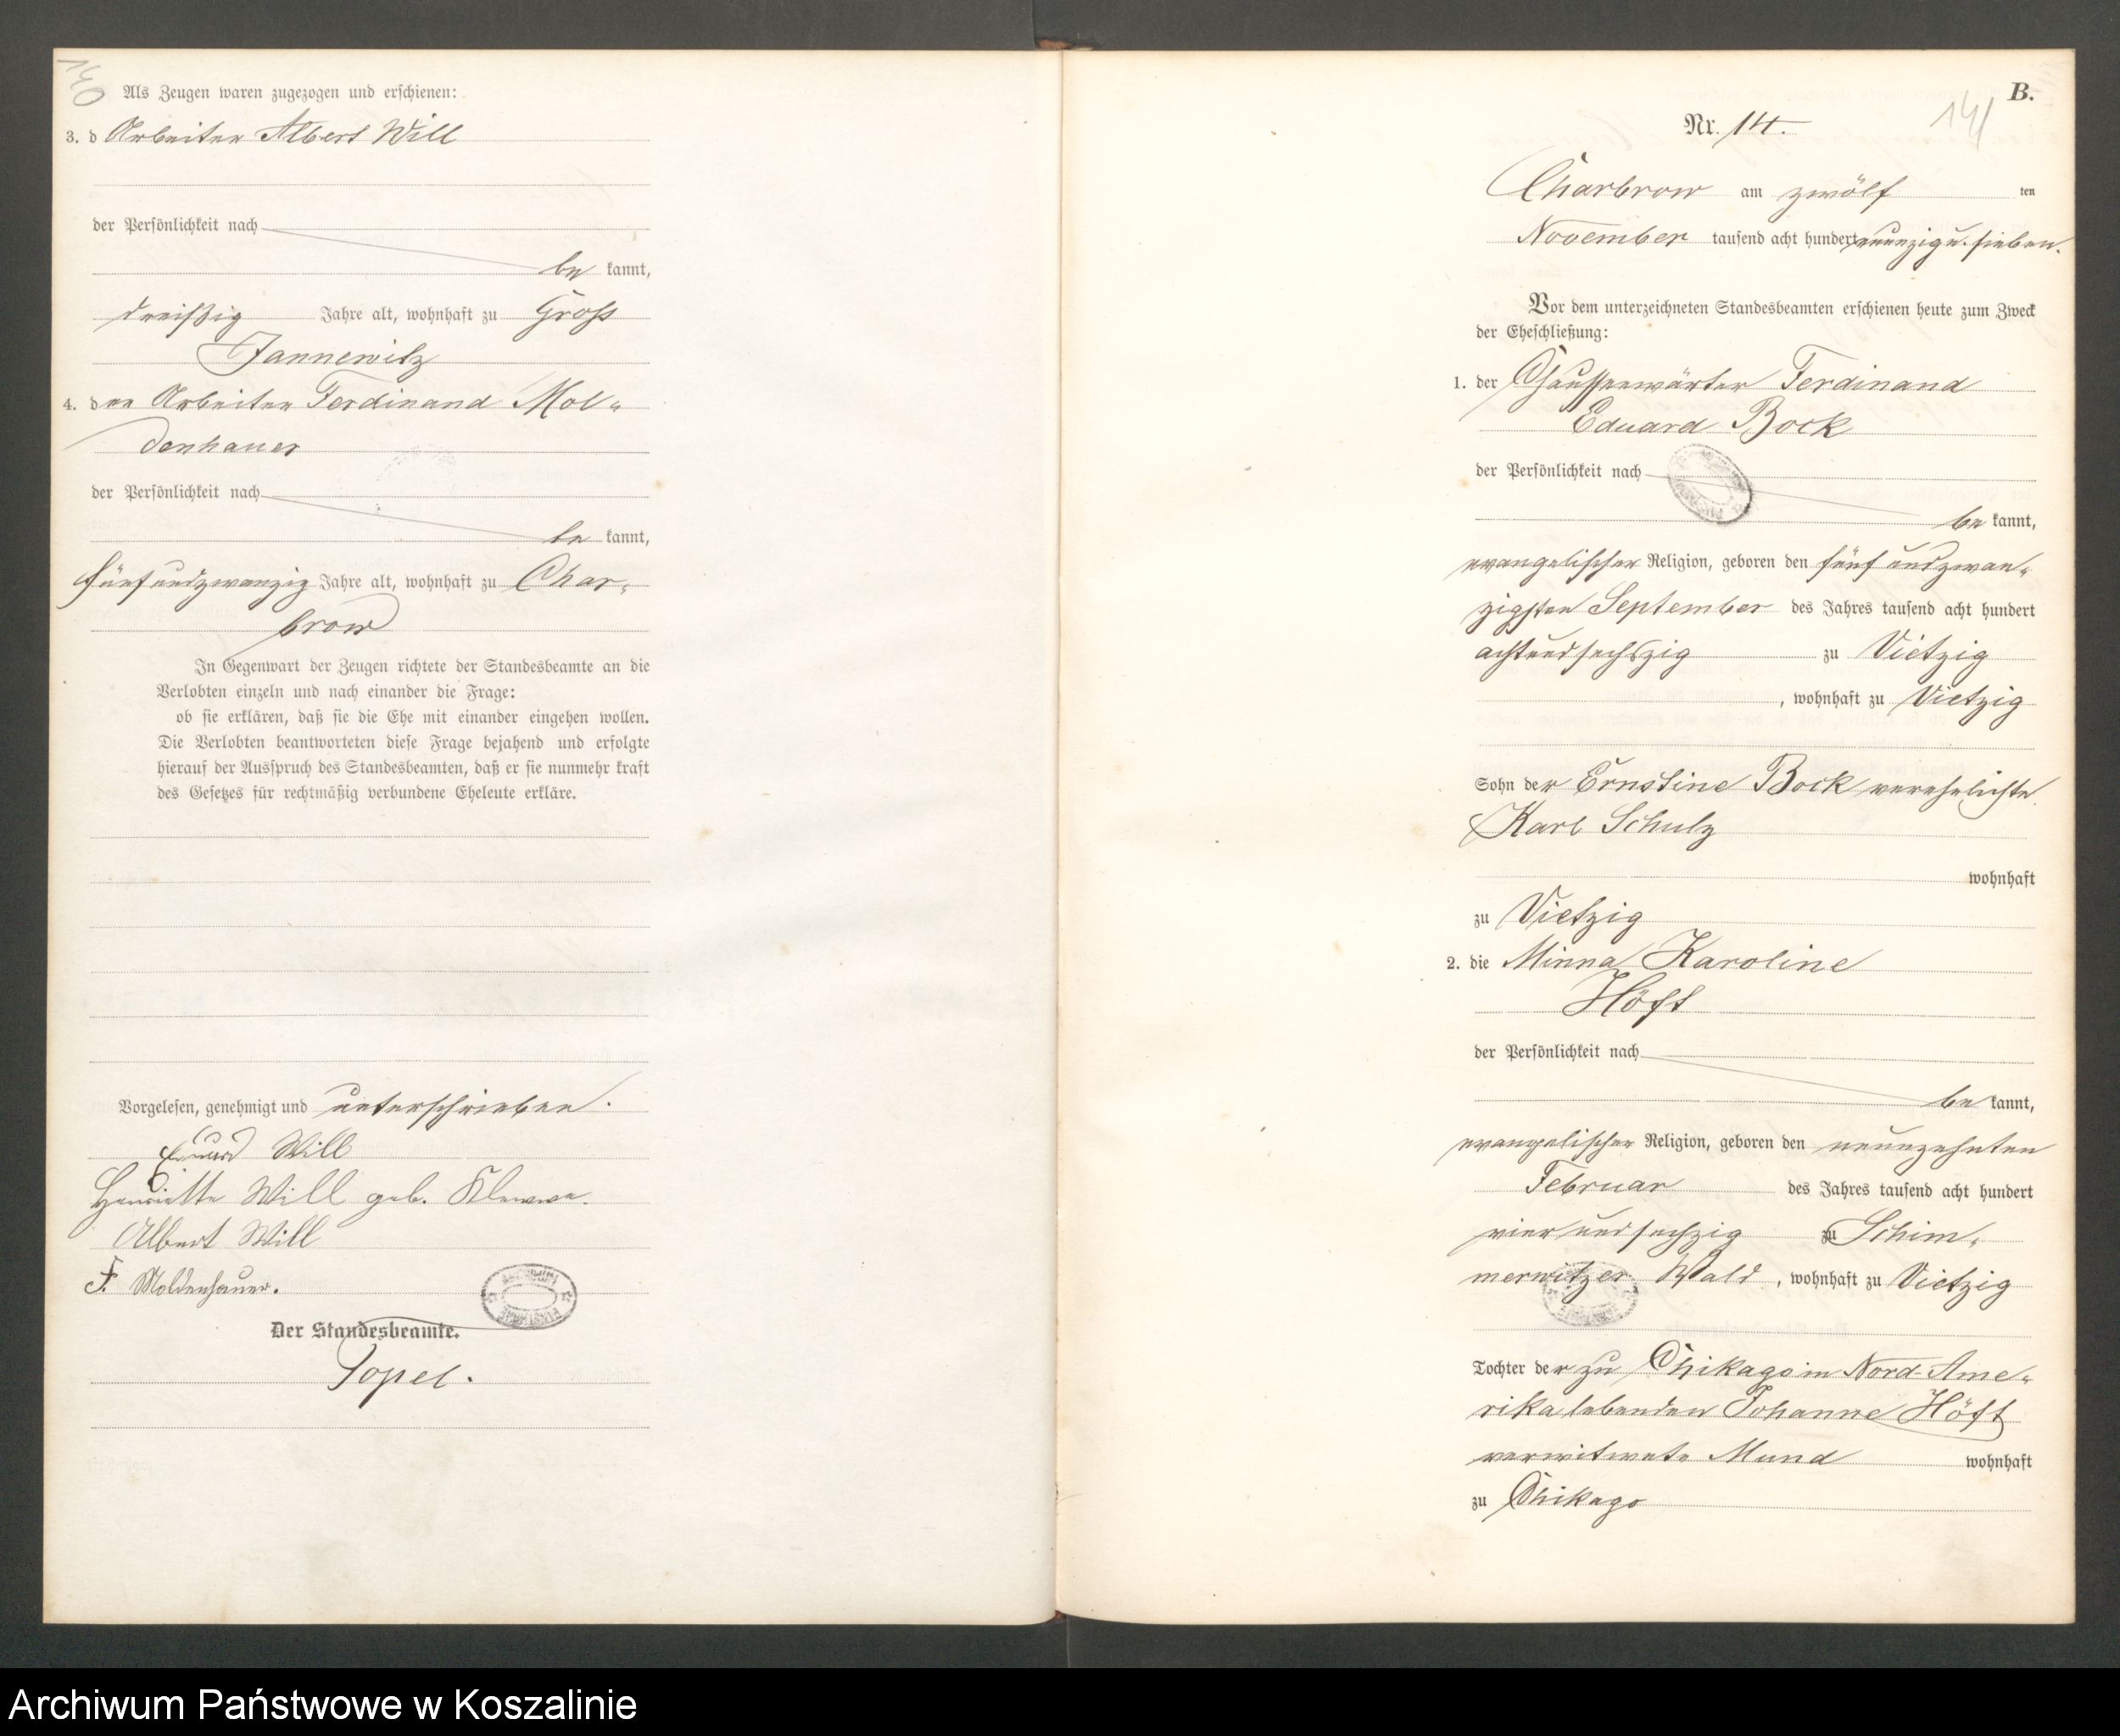 140
Als Zeugen waren zugezogen und erschienen:
3. d Arbeiter Albert Will
der Persönlichkeit nach
be kannt,
dreißig Jahre alt, wohnhaft zu Groß
Jannewitz
4. der Arbeiter Ferdinand Mol-
denhauer
der Persönlichkeit nach
be kannt,
fünfundzwanzig Jahre alt, wohnhaft zu Char-
brow
In Gegenwart der Zeugen richtete der Standesbeamte an die
Verlobten einzeln und nach einander die Frage:
ob sie erklären, daß sie die Ehe mit einander eingehen wollen.
Die Verlobten beantworteten diese Frage bejahend und erfolgte
hierauf der Ausspruch des Standesbeamten, daß er sie nunmehr kraft
des Gesetzes für rechtmäßig verbundene Eheleute erkläre.
Vorgelesen, genehmigt und unterschrieben.
Eduard Will
Henriette Will geb.
Albert Will
F. Moldenhauer.
Der Standesbeamte.
Popel.
B.
141
Nr. 14.
Charbrow am zwölf ten
November tausend acht hundert neunzig u. sieben.
Vor dem unterzeichneten Standesbeamten erschienen heute zum Zweck
der Eheschließung:
1. der Chausseewärter Ferdinand
Eduard Bock
der Persönlichkeit nach
be kannt,
evangelischer Religion, geboren den fünf undzwan-
zigsten September des Jahres tausend acht hundert
achtundsechszig zu Vietzig
, wohnhaft zu Vietzig
Sohn der Ernstine Bock verehelichte
Karl Schulz
wohnhaft
zu Vietzig
2. die Minna Karoline
Höft
der Persönlichkeit nach
be kannt,
evangelischer Religion, geboren den neunzehnten
Februar des Jahres tausend acht hundert
vier und sechzig zu Schim-
merwitzer Wald, wohnhaft zu Vietzig
Tochter der zu Chikago in Nord-Ame-
rika lebenden Johanne Höft
verwitwete Mund wohnhaft
zu Chikago
Archiwum Państwowe w Koszalinie